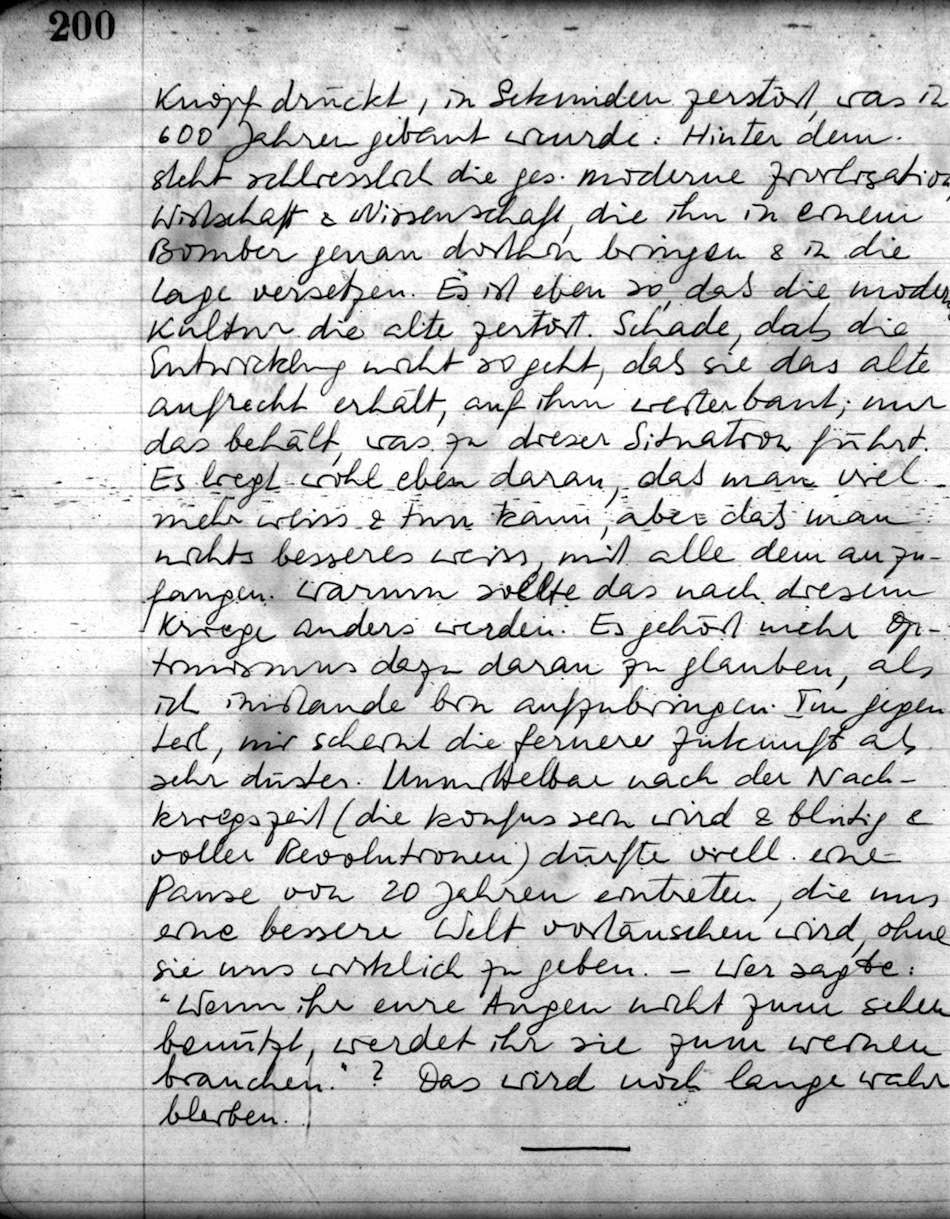 200
Knopf drückt, in Sekunden zerstört, was in
600 Jahren gebaut wurde. Hinter dem
steht schliesslich die ges. moderne Zivilisation,
Wirtschaft & Wissenschaft, die ihn in einem
Bomber genau dorthin bringen & in die
Lage versetzen. Es ist eben so, das die moder
Kultur die alte zerstört. Schade, das die
Entwicklung nicht so geht, das sie das alte
aufrecht erhält, auf ihm weiterbaut; nur
das behält, was zu dieser Situation führt.
Es liegt wohl eben daran, das man viel
mehr weiss & tun kann, aber das man
nichts besseres weiss, mit alle dem anzu-
fangen. Warum sollte das nach diesem
Kriege anders werden. Es gehört mehr Op-
timismus dazu daran zu glauben, als
ich imstande bin aufzubringen. Im gegen
teil, mir scheint die fernere Zukunft als
sehr düster. Unmittelbar nach der Nach-
kriegszeit (die konfus sein wird & blutig &
voller Revolutionen) dürfte viell. eine
Pause von 20 Jahren eintreten, die uns
eine bessere Welt vortäuschen wird, ohne
sie uns wirklich zu geben. - Wer sagte:
"Wenn ihr eure Augen nicht zum sehen
benützt, werdet ihr sie zum weinen
brauchen."? Das wird noch lange wahr
bleiben.